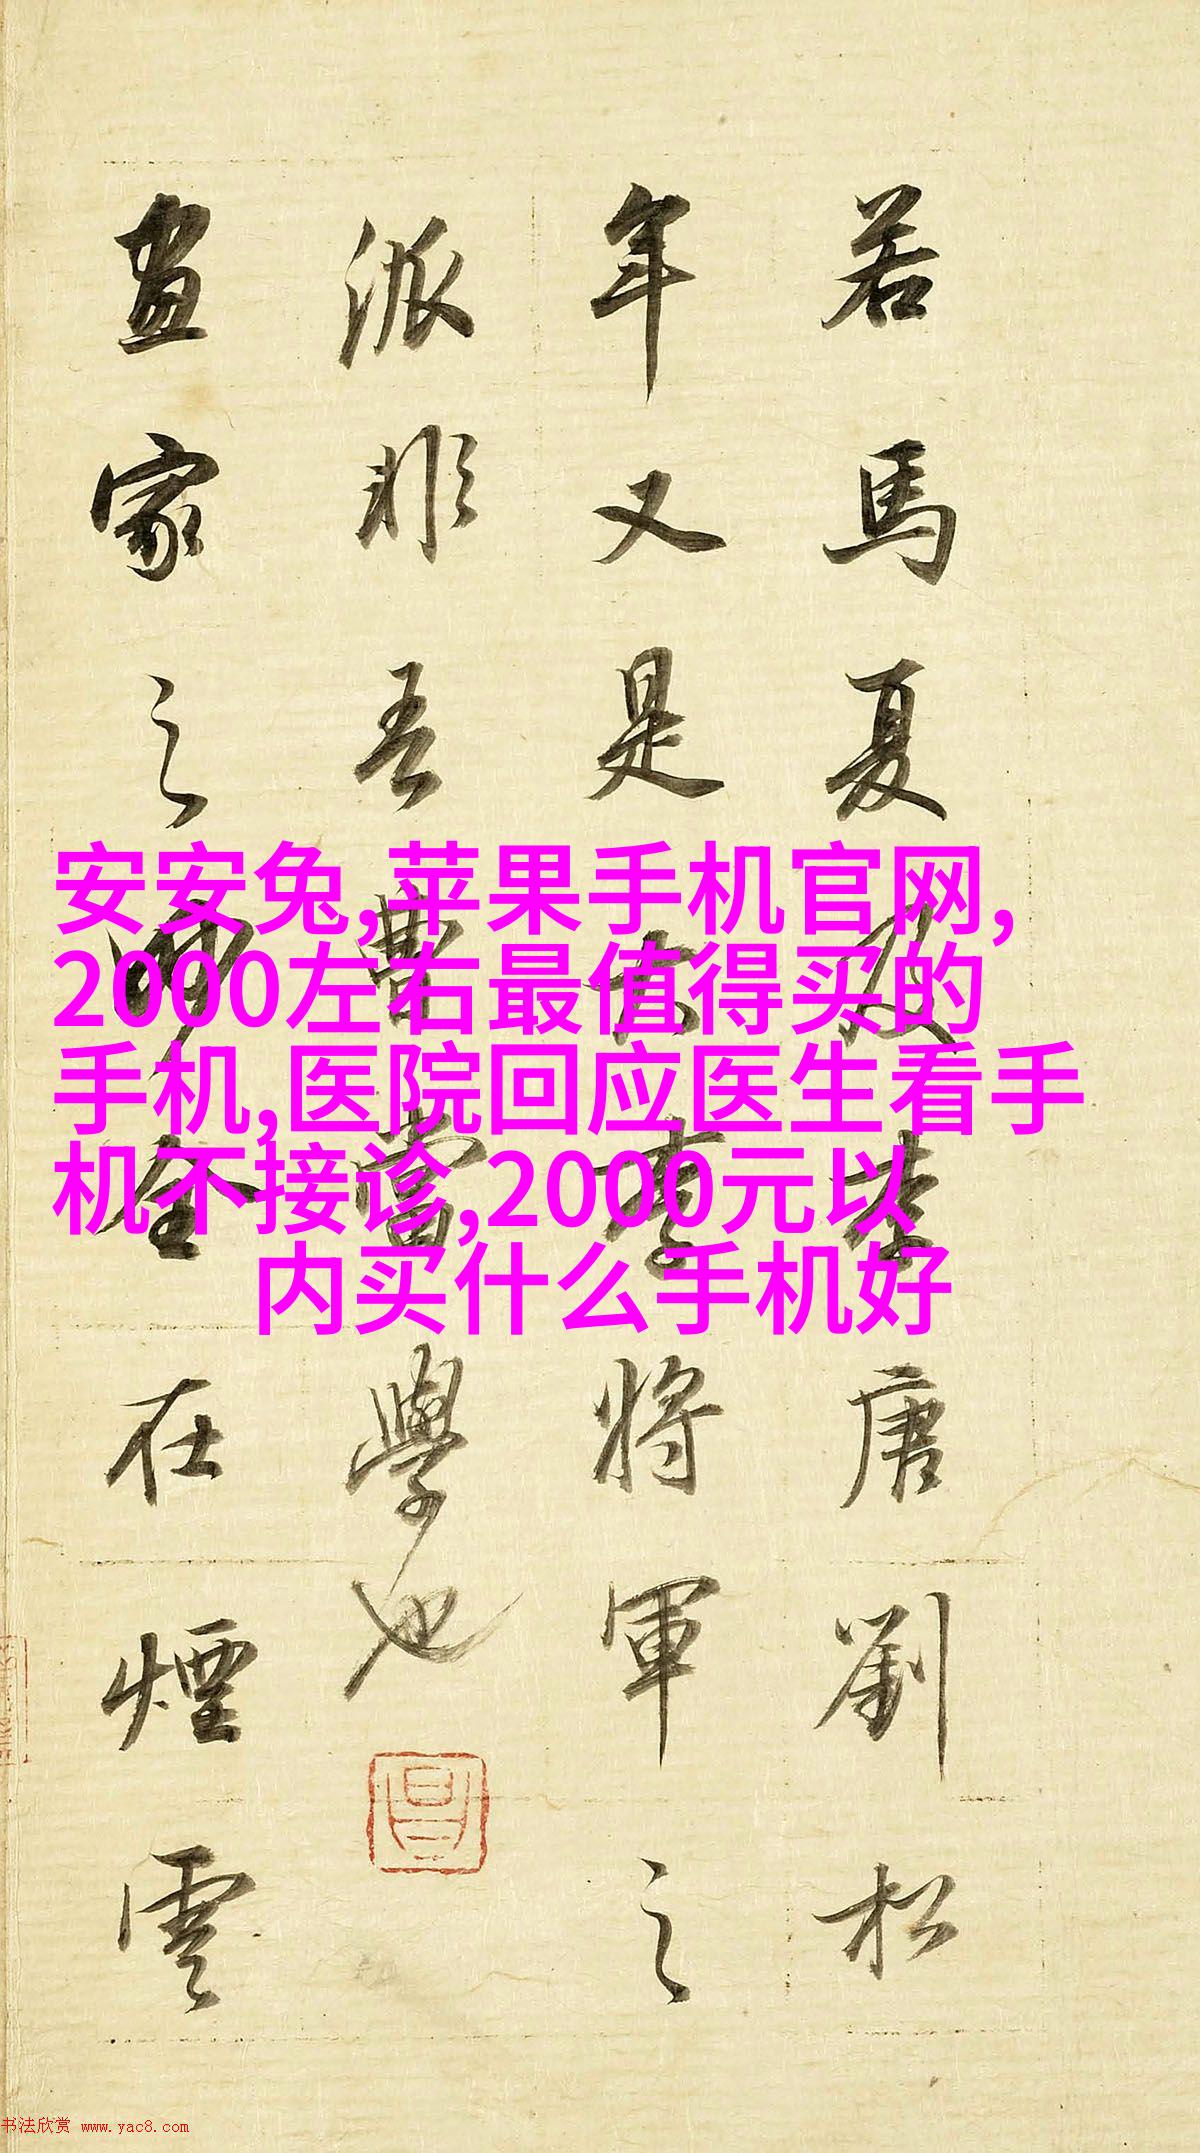 若馬夏及李唐劉松
年又是大李將軍之
派非吾曹當學也
畫家之妙全在煙雲
安安兔,苹果手机官网,
2000左右最值得买的
手机,医院回应医生看手
机不接诊,2000元以
内买什么手机好
书法欣赏 www.yac8.com